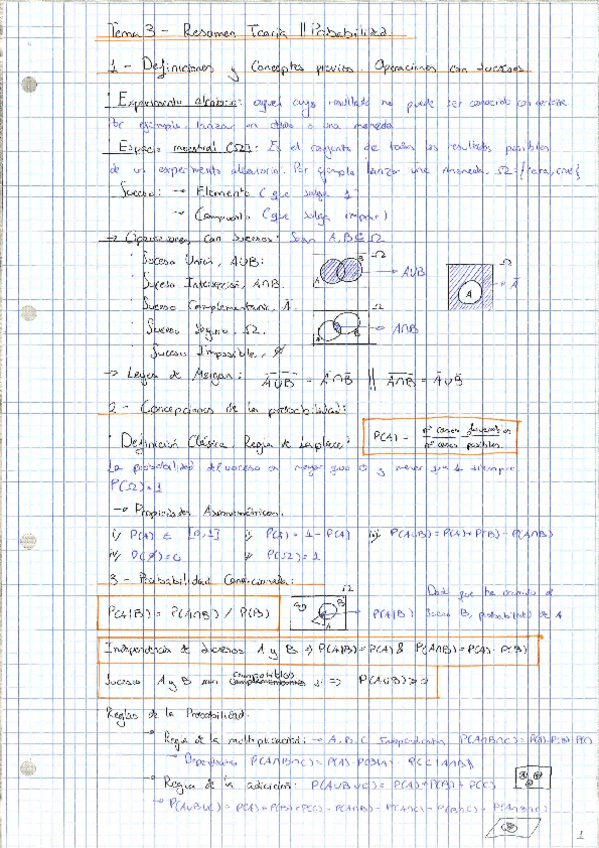 Tema 3 - Resumen Teoría || Probabilidad
1 - Definiciones y Conceptos previos. Operaciones con sucesos
· Experimento aleatorio: aquel cuyo resultado no puede ser conocido con
Por ejemplo, lanzar un dado o una moneda
· Espacio muestral (Ω): Es el conjunto de todos los resultados posibles
de un experimento aleatorio. Por ejemplo lanzar una moneda, Ω={cara, cruz}
Suceso: → Elemental (que salga 1)
→ Compuesto (que salga impar)
→ Operaciones con sucesos: Sean A, B ⊆ Ω
· Suceso Unión, A∪B:
· Suceso Intersección, A∩B.
· Suceso Complementario, A̅.
· Suceso Seguro, Ω.
· Suceso Imposible, ∅
A B Ω → A∪B
Ω A → A̅
A B Ω → A∩B
→ Leyes de Morgan: A̅∪̅B̅ = A̅∩B̅ || A̅∩̅B̅ = A̅∪B̅
2 - Concepciones de la probabilidad:
· Definición Clásica. Regla de Laplace:
P(A) = nº casos favorables / nº casos posibles
La probabilidad del suceso es mayor que 0 y menor que 1 siempre
P(Ω)=1
→ Propiedades
i) P(A) ∈ [0,1] P(A̅) = 1 - P(A) iii) P(A∪B) = P(A)+P(B) - P(A∩B)
iv) P(∅)=0 P(Ω)=1
3 - Probabilidad Condicionada:
P(A|B) = P(A∩B) / P(B)
Ω B A → P(A|B)
Dado que ha ocurrido el
suceso B, probabilidad de A
Independencia de sucesos A y B ⇒ P(A|B)=P(A) & P(A∩B)=P(A)·P(B)
Sucesos A y B son compatibles si ⇒ P(A∪B)
Reglas de la Probabilidad.
→ Regla de la multiplicación: → A, B, C Independientes P(A∩B∩C) = P(A)·P(B)·P(C)
→ Dependientes P(A∩B∩C) = P(A)·P(B|A)·P(C|A∩B)
→ Regla de la adición: P(A∪B∪C) = P(A)+P(B)+P(C)
→ P(A∪B∪C) = P(A)+P(B)+P(C) - P(A∩B) - P(A∩C) - P(B∩C) + P(A∩B∩C)
1